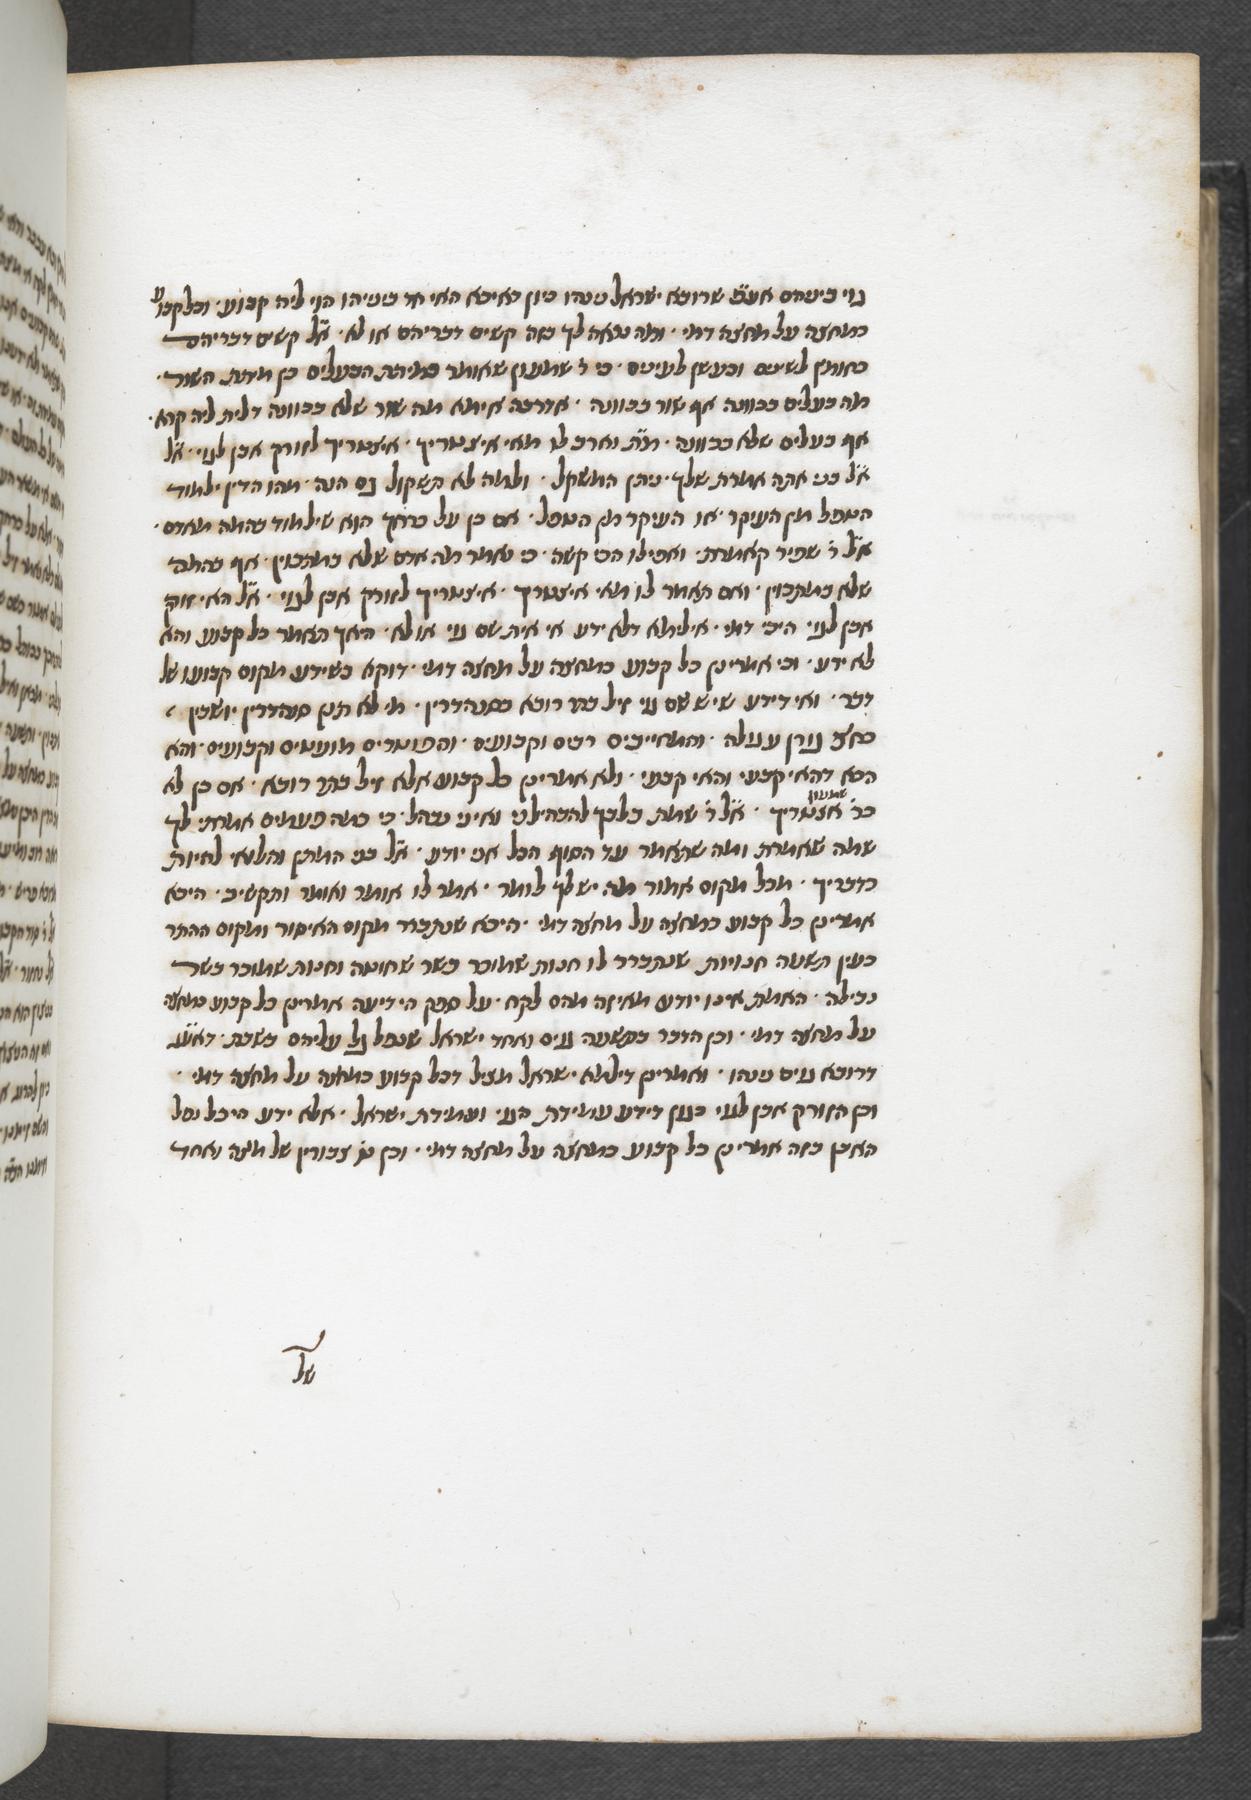 גוי ביניהם אע״פ שרובא ישראל נינהו כיון דאיכא האי חד בינייהו הוי ליה קבוע · וכל קבוע
כמחצה על מחצה דמי · ומה נראה לך בזה קשים דבריהם או לא · א״ל קשים דבריהם
כחומץ לשינים וכעשן לעינים · כי ר׳ שמעון שאומר כמיתת הבעלים כן מיתת השור ·
מה בעלים בכוונה אף שור בכוונה · אדרבה אימא מה שור שלא בכוונה דלית ליה קרא ·
אף בעלים שלא בכוונה · ת״ת וארב לו מאי איצטריך · איצטריך לזורק אבן לגוי · א״ל
א״ל בני אתה אמרת שלך · ניתן המשקל · ולמה לא תשקול גם הנה · מהו הדין ילמוד
הטפל מן העיקר · או העיקר מן הטפל · אם כן על כרחך הוא שילמוד בהמה מאדם ·
א״ל ר׳ שפיר קאמרת · ואפילו הכי קשה · כי נאמר מה אדם שלא במתכוין · אף בהמה
שלא במתכוין · ואם תאמר לו מאי איצטריך · איצטריך לזורק אבן לגוי · א״ל האי זורק
אבן לגוי היכי דמי · אילימא דלא ידע אי אית שם גוי או לא · היאך תאמר כל קבוע והא
לא ידע · וכי אמרינן כל קבוע כמחצה על מחצה דמי · דוקא כשידע מקום קבועו של
דבר · ואי דידע שיש שם גוי זיל בתר רובא כסנהדרין · מי לא תנן סנהדרין יושבין
כחצי גורן עגולה · והמחייבים רבים וקבועים · והפוטרים מועטים וקבועים · והא
הכא דהאי קבעי והאי קבעי · ולא אמרינן כל קבוע אלא זיל בתר רובא · אם כן לא
כר׳ שמעון אצטריך · א״ל ר׳ שמת בלבך להבהילני ואיני נבהל · כי כמה פעמים אמרתי לך
שמה שאמרת ומה שתאמר עד הסוף הכל אני יודע · א״ל בני המתן והלואי לחיות
כדבריך · מכל מקום אמור מה יש לך לומר · אמר לו אומר ואומר ותקשיב · היכא
אמרינן כל קבוע כמחצה על מחצה דמי · היכא שנתברר מקום האיסור ומקום ההתר
כעין תשעה חנויות שנתברר לו חנות שמוכר בשר שחוטה וחנות שמוכר בשר
נבילה · האמת אינו יודע מאיזה מהם לקח · על ספק הידיעה אמרינן כל קבוע כמחצה
על מחצה דמי · וכן הדבר בתשעה גוים ואחד ישראל שנפל גל עליהם בשבת · דאע״ג
דרובא גוים נינהו · ואמרינן דילמא ישראל תציל דכל קבוע כמחצה על מחצה דמי ·
וכן הזורק אבן לגוי כגון דידע עמידת הגוי ועמידת ישראל · אלא ידע היכל נפל
האבן כזה אמרינן כל קבוע כמחצה על מחצה דמי · וכן ט׳ צבורין של מצה ואחד
של